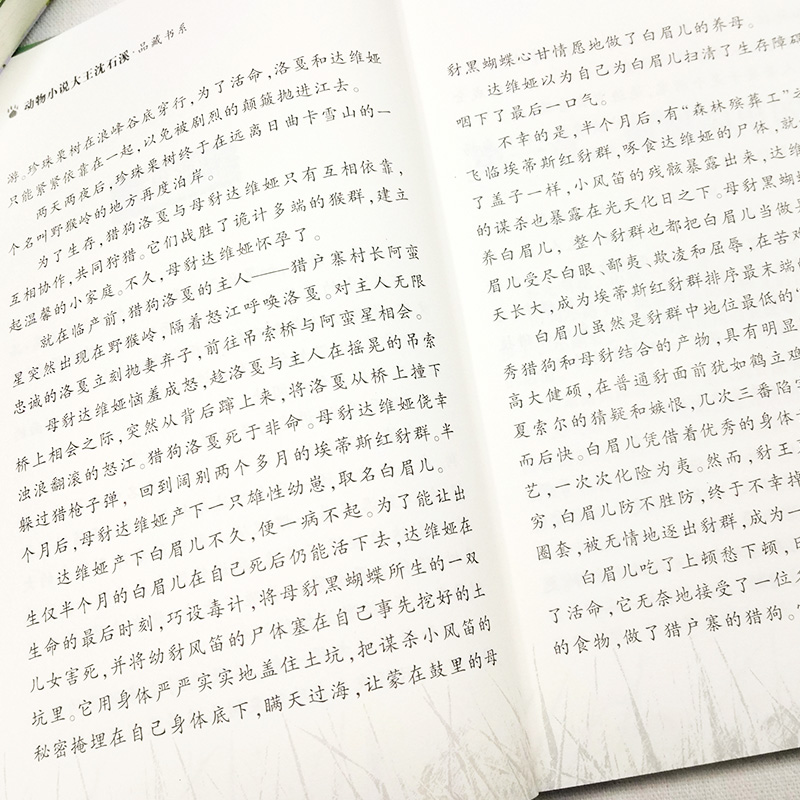 动物小说大王沈石溪·品藏书系
游。珍珠栗树在浪峰谷底穿行，为了活命，洛戛和达维娅
只能紧紧依靠在一起，以免被剧烈的颠簸抛进江去。
两天两夜后，珍珠栗树终于在远离日曲卡雪山的一
个名叫野猴岭的地方再度泊岸。
为了生存，猎狗洛戛与母豺达维娅只有互相依靠，
互相协作，共同狩猎。它们战胜了诡计多端的猴群，建立
起温馨的小家庭。不久，母豺达维娅怀孕了。
就在临产前，猎狗洛戛的主人——猎户寨村长阿蛮
星突然出现在野猴岭，隔着怒江呼唤洛戛。对主人无限
忠诚的洛戛立刻抛妻弃子，前往吊索桥与阿蛮星相会。
母豺达维娅恼羞成怒，趁洛戛与主人在摇晃的吊索
桥上相会之际，突然从背后蹿上来，将洛戛从桥上撞下
浊浪翻滚的怒江。猎狗洛戛死于非命。母豺达维娅侥幸
躲过猎枪子弹，回到阔别两个多月的埃蒂斯红豺群。半
个月后，母豺达维娅产下一只雄性幼崽，取名白眉儿。
达维娅产下白眉儿不久，便一病不起。为了能让出
生仅半个月的白眉儿在自己死后仍能活下去，达维娅在
生命的最后时刻，巧设毒计，将母豺黑蝴蝶所生的一双
儿女害死，并将幼豺风笛的尸体塞在自己事先挖好的土
坑里。它用身体严严实实地盖住土坑，把谋杀小风笛的
秘密掩埋在自己身体底下，瞒天过海，让蒙在鼓里的母
豺黑蝴蝶心甘情愿地做了白眉儿的养母。
达维娅以为自己为白眉儿扫清了生存障碍
咽下了最后一口气。
不幸的是，半个月后，有“森林殡葬工”
飞临埃蒂斯红豺群，啄食达维娅的尸体，就
了盖子一样，小风笛的残骸暴露出来，达维
的谋杀也暴露在光天化日之下。母豺黑蝴
养白眉儿，整个豺群也都把白眉儿当做是
眉儿受尽白眼、鄙夷、欺凌和屈辱，在苦难
天长大，成为埃蒂斯红豺群排序最末端的
白眉儿虽然是豺群中地位最低的“
秀猎狗和母豺结合的产物，具有明显
高大健硕，在普通豺面前犹如鹤立鸡
夏索尔的猜疑和嫉恨，几次三番陷害
而后快。白眉儿凭借着优秀的身体
艺，一次次化险为夷。然而，豺王
穷，白眉儿防不胜防，终于不幸掉
圈套，被无情地逐出豺群，成为一
白眉儿吃了上顿愁下顿，日
了活命，它无奈地接受了一位
的食物，做了猎户寨的猎狗。